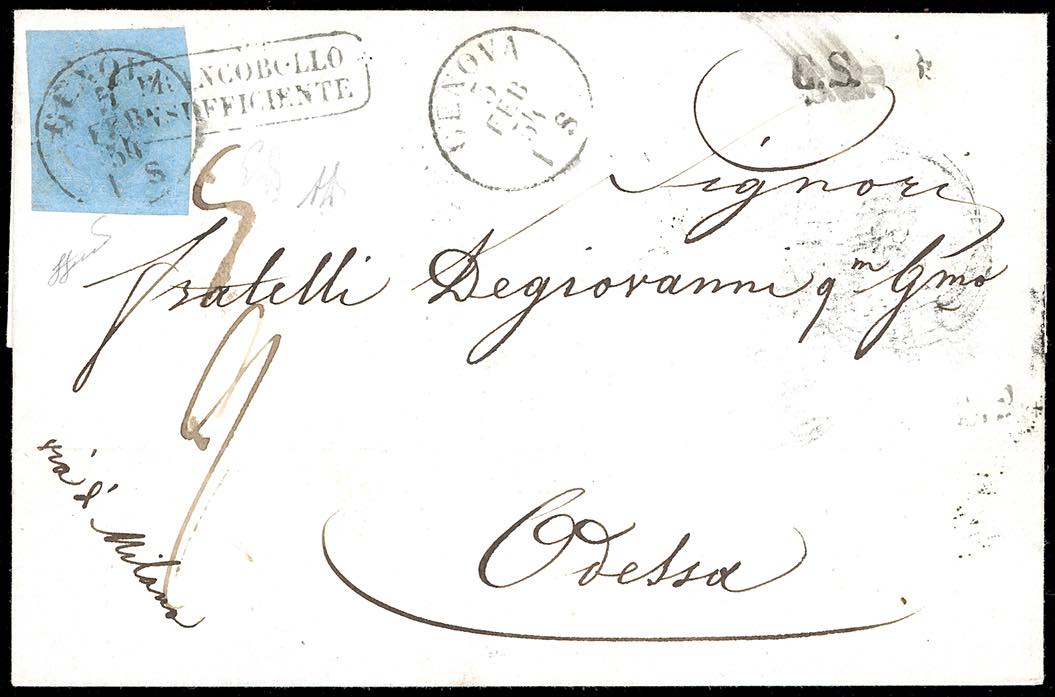 GENOVA
5
FEB
54
1 S
FRANCOBOLLO
INSUFFICIENTE
GENOVA
5
FEB
54
1 S
C.S.
Signori
fratelli Degiovanni qm Gmo
via di Milano
Odessa